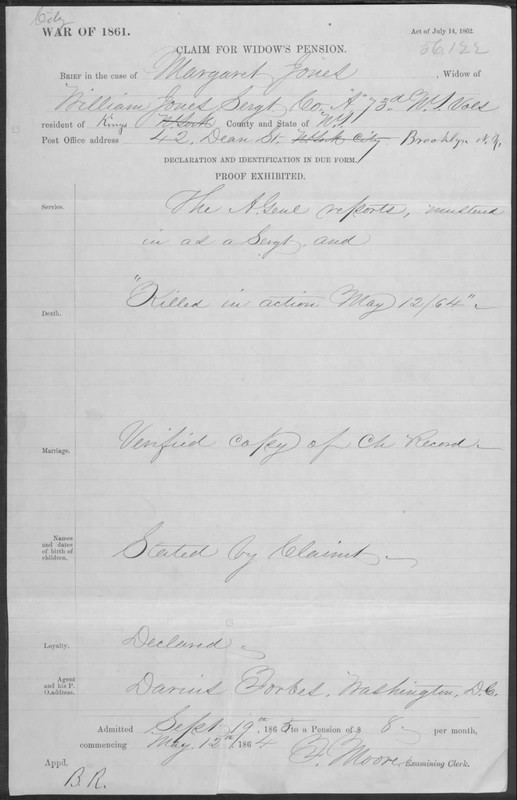 City
WAR OF 1861.
Act of July 14, 1862.
56,122
CLAIM FOR WIDOW'S PENSION.
BRIEF in the case of Margaret Jones, Widow of
William Jones Sergt Co. "A" 73d N.Y. Vols
resident of Kings N. York County and State of N.Y.
Post Office address 42, Dean St. N. York City, Brooklyn N.Y.
DECLARATION AND IDENTIFICATION IN DUE FORM.
PROOF EXHIBITED.
Service.
The A. Genl reports, mustered
in as a Sergt, and
"Killed in action May 12/64"
Death.
Marriage.
Verified copy of Ch Record
Names and dates of birth of children.
Stated by Claimt
Loyalty.
Declared
Agent and his P. O. address.
Darius Forbes, Washington, D.C.
Admitted Sept 19th, 1865 to a Pension of $ 8 per month,
commencing May 12th, 1864
Moore, Examining Clerk.
Appd.
B.R.